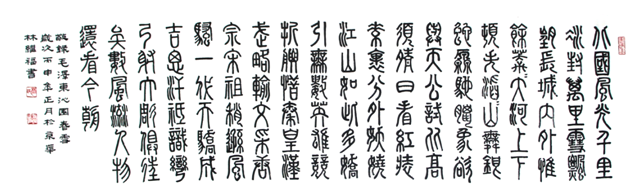 北國風光千里
冰封萬里雪飄
望長城內外惟
餘莽莽大河上下
頓失滔滔山舞銀
蛇原馳蠟象欲
與天公試比高
須晴日看紅裝
素裹分外妖嬈
江山如此多嬌
引無數英雄競
折腰惜秦皇漢
武略輸文采唐
宗宋祖稍遜風
騷一代天驕成
吉思汗祇識彎
弓射大雕俱往
矣數風流人物
還看今朝
錄毛澤東沁園春雪
歲次丙申年正月於
林繼福書